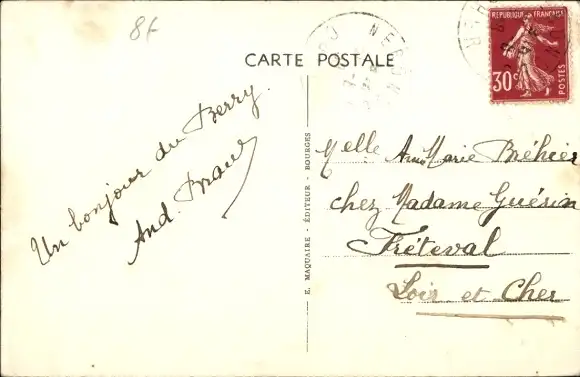 86
CARTE POSTALE
NERON
RÉPUBLIQUE FRANÇAISE
30c
POSTES
Un bonjour du Berry.
And.
E. MAQUAIRE - ÉDITEUR - BOURGES
Melle AnneMarie Bréhier
chez Madame Guérin
Fréteval
Loir et Cher